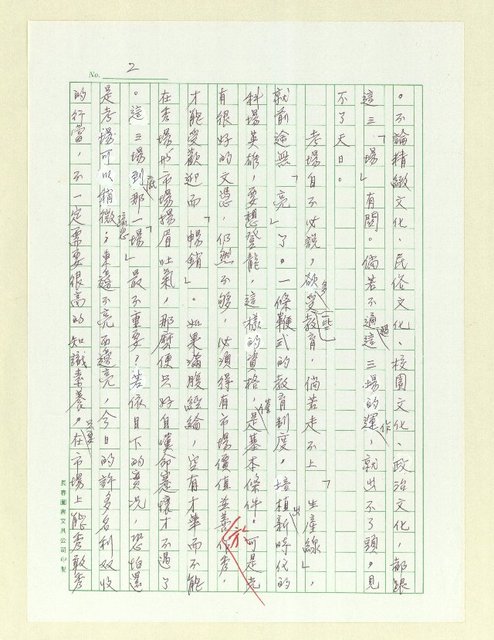 No. 2
。不論精緻文化、民俗文化、校園文化、政治文化，都跟
這三「場」有關。倘若不通過這三場的運作，就出不了頭，見
不了天日。
考場自不必說，欲多受一些教育，倘若走不上「生產線」，
就前途無「亮」了。一條鞭式的教育制度，培植出新時代的
科場英雄，要想登龍，這樣的資格，僅是基本條件。可是光
有很好的文憑仍然不夠，必須得有市場價值並善於作秀，
才能受歡迎而「暢銷」。如果滿腹經綸，空有才華而不能
在秀場的市場揚眉吐氣，那麼便只好自嘆命蹇懷才不遇了
。這三場到底那一「場」最不重要？若依目下的實況，恐怕還
是考場可以稍微輕忽；東邊不亮西邊亮，今日的許多名利双收
的行當，不一定需要很高的知識素養，只要在市場上能秀敢秀
長春圖書文具公司印製